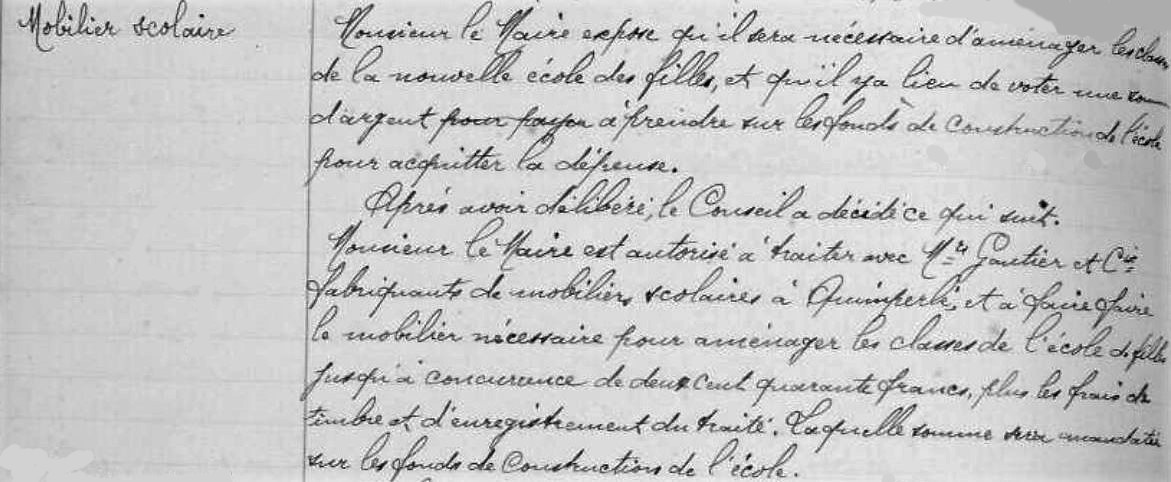 Mobilier scolaire
Monsieur le Maire expose qu'il sera nécessaire d'aménager les classes
de la nouvelle école des filles, et qu'il y a lieu de voter une som
d'argent pour payer à prendre sur les fonds de construction de l'école
pour acquitter la dépense.
Après avoir délibéré, le Conseil a décidé ce qui suit.
Monsieur le Maire est autorisé à traiter avec Mrs Gautier et Cie
fabriquants de mobiliers scolaires à Quimperlé, et à faire faire
le mobilier nécessaire pour aménager les classes de l'école de filles
jusqu'à concurence de deux cent quarante francs, plus les frais de
timbre et d'enregistrement du traité. Laquelle somme sera mandatée
sur les fonds de Construction de l'école.